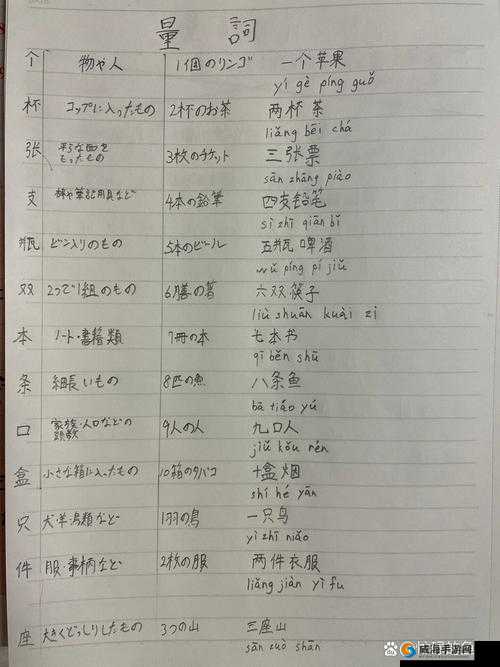 量詞
个 物や人 1個のリンゴ 一个苹果
yí gè píng guǒ
杯 コップに入ったもの 2杯のお茶 两杯茶
liǎng bēi chá
张 平らな面を もったもの 3枚のチケット 三张票
sān zhāng piào
支 棒や筆記用具など 4本の鉛筆 四支铅笔
sì zhī qiān bǐ
瓶 ビン入りのもの 5本のビール 五瓶啤酒
wǔ píng pí jiǔ
双 2つで1組のもの 6膳の箸 六双筷子
liù shuān kuài zi
本 ノート・書籍類 7冊の本 七本书
qī běn shū
条 細長いもの 8匹の魚 八条鱼
bā tiáo yú
口 家族・人口などの 頭数 9人の人 九口人
jiǔ kǒu rén
盒 小さな箱に入ったもの 10箱のタバコ 十盒烟
shí hé yān
只 犬羊鳥類など 1羽の鳥 一只鸟
yì zhī niǎo
件 服・事柄など 2枚の服 两件衣服
liǎng jiàn yī fu
座 大きくどっしりしたもの 3つの山 三座山
sān zuò shān
威海手游网